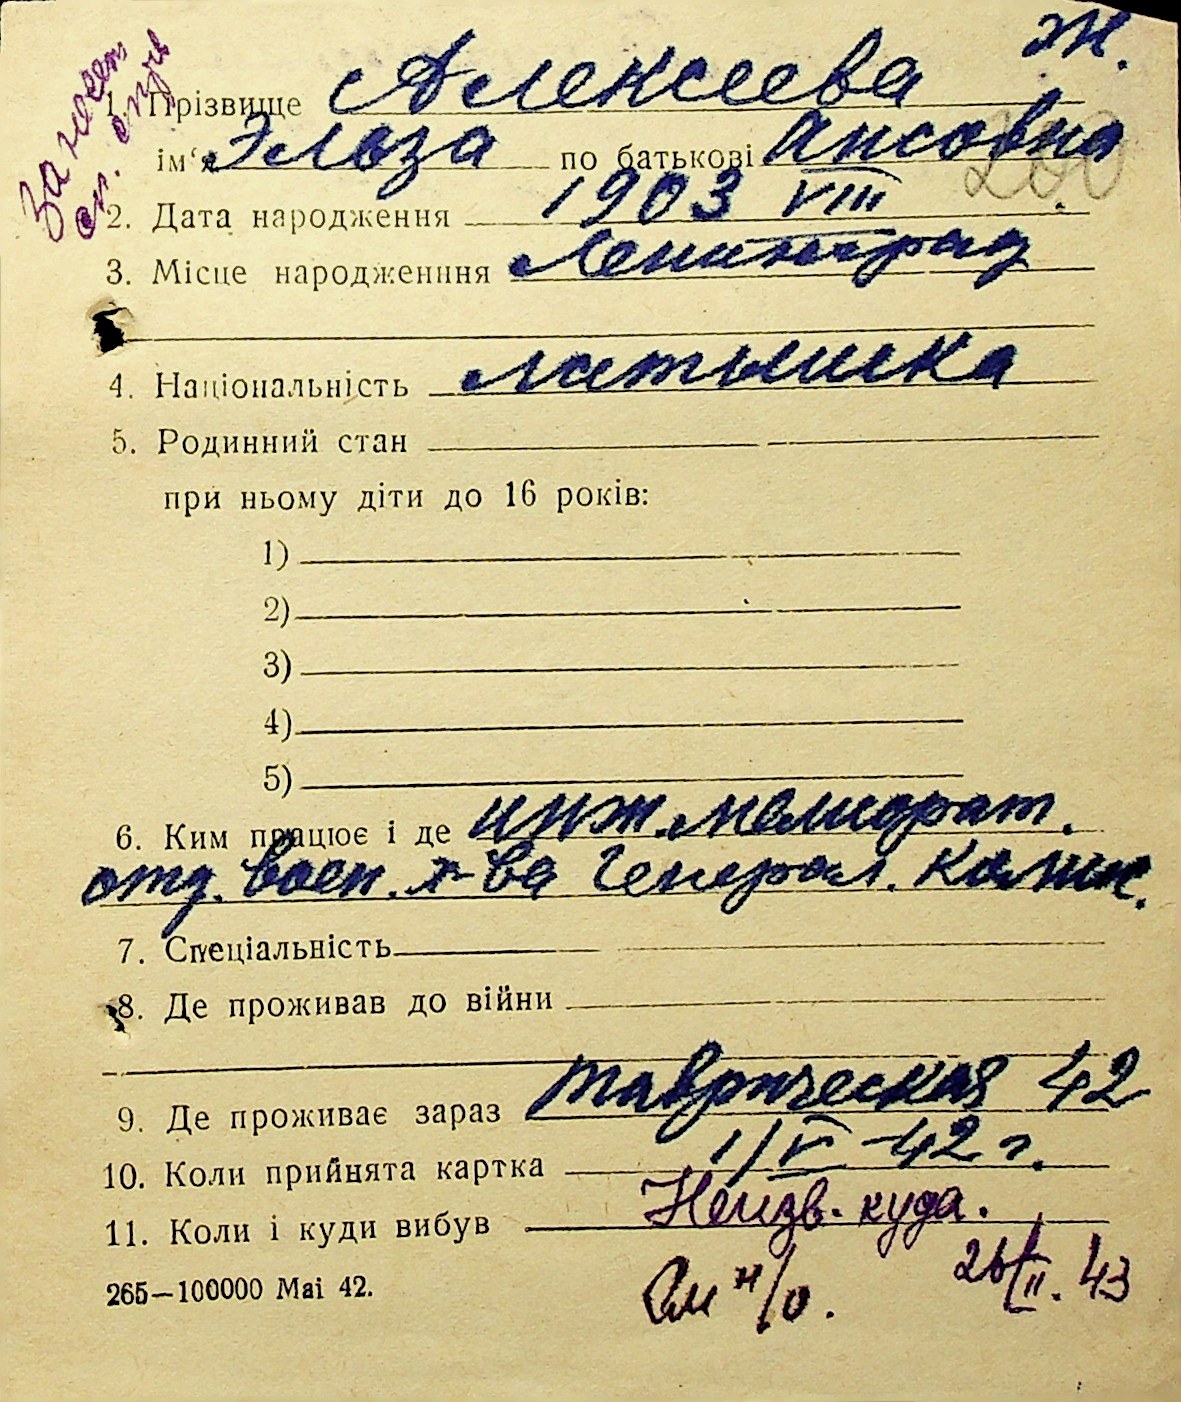 Занесен
сп.
ж.
1. Прізвище Алексеева
ім‘я Эльза по батькові Ансовна
200
2. Дата народження 1903 VIII
3. Місце народженння Ленинград
4. Національність латышка
5. Родинний стан
при ньому діти до 16 років:
1)
2)
3)
4)
5)
6. Ким працює і де инж. мелиорат.
отд. воен. х-ва Генерал. Комис.
7. Спеціальність
8. Де проживав до війни
9. Де проживає зараз Таврическая 42
10. Коли прийнята картка 1/V-42 г.
11. Коли і куди вибув Неизв. куда.
265—100000 Mai 42. См н/о. 26/II. 43